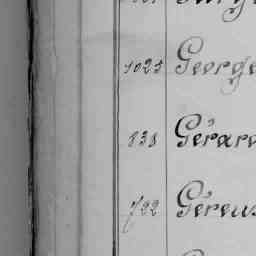 1025 George
838 Gérard
722 Géreus